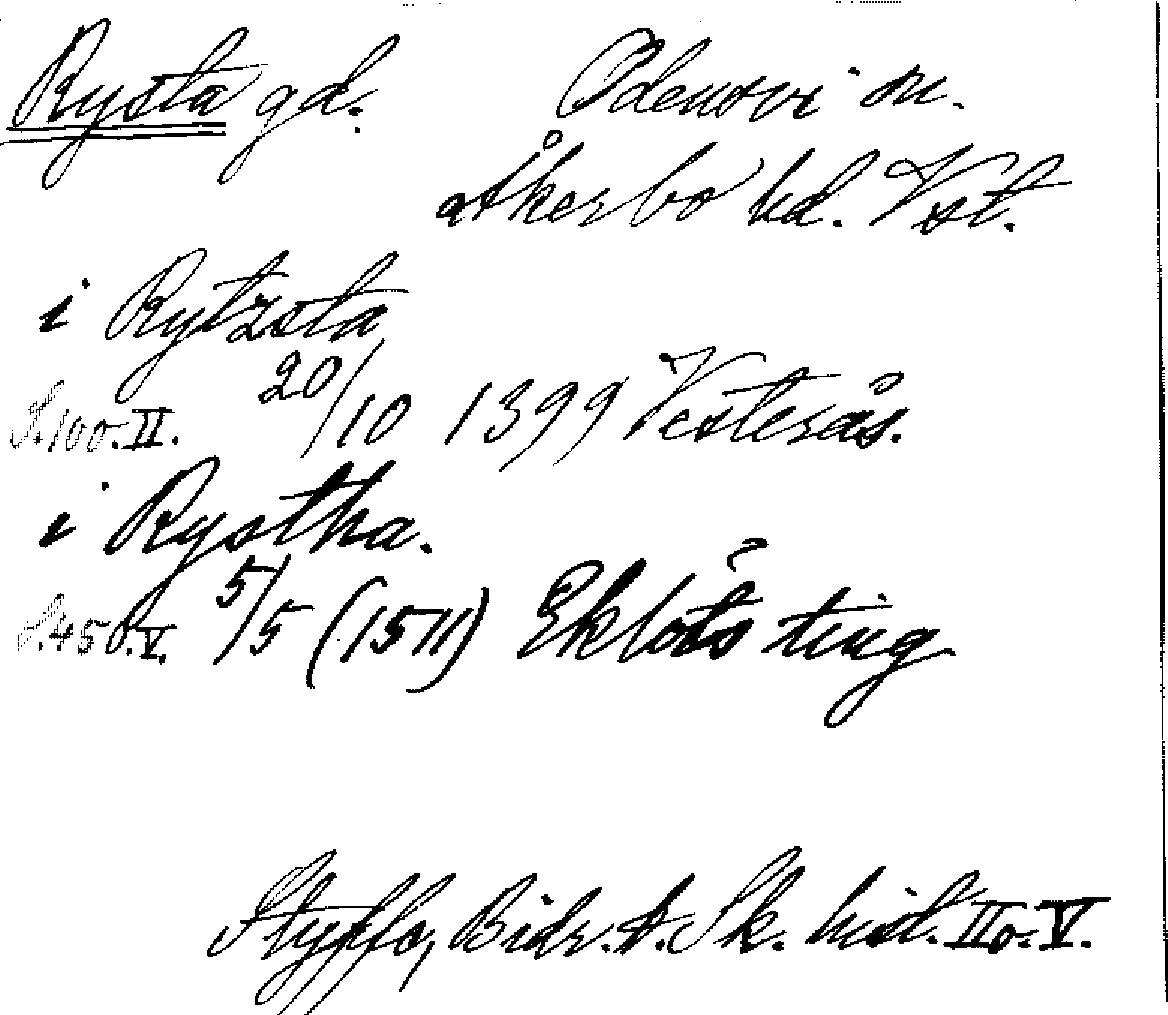 Rysta gd. Odensvi sn.
Åkerbo hd. Vst.
i Rytzsta
S. 100. II. 20/10 1399 Vesterås.
i Rystha.
S. 450. V. 5/5 (1511) Ekloås ting
Styffe, Bidr. t. Sk. hist. II o. V.